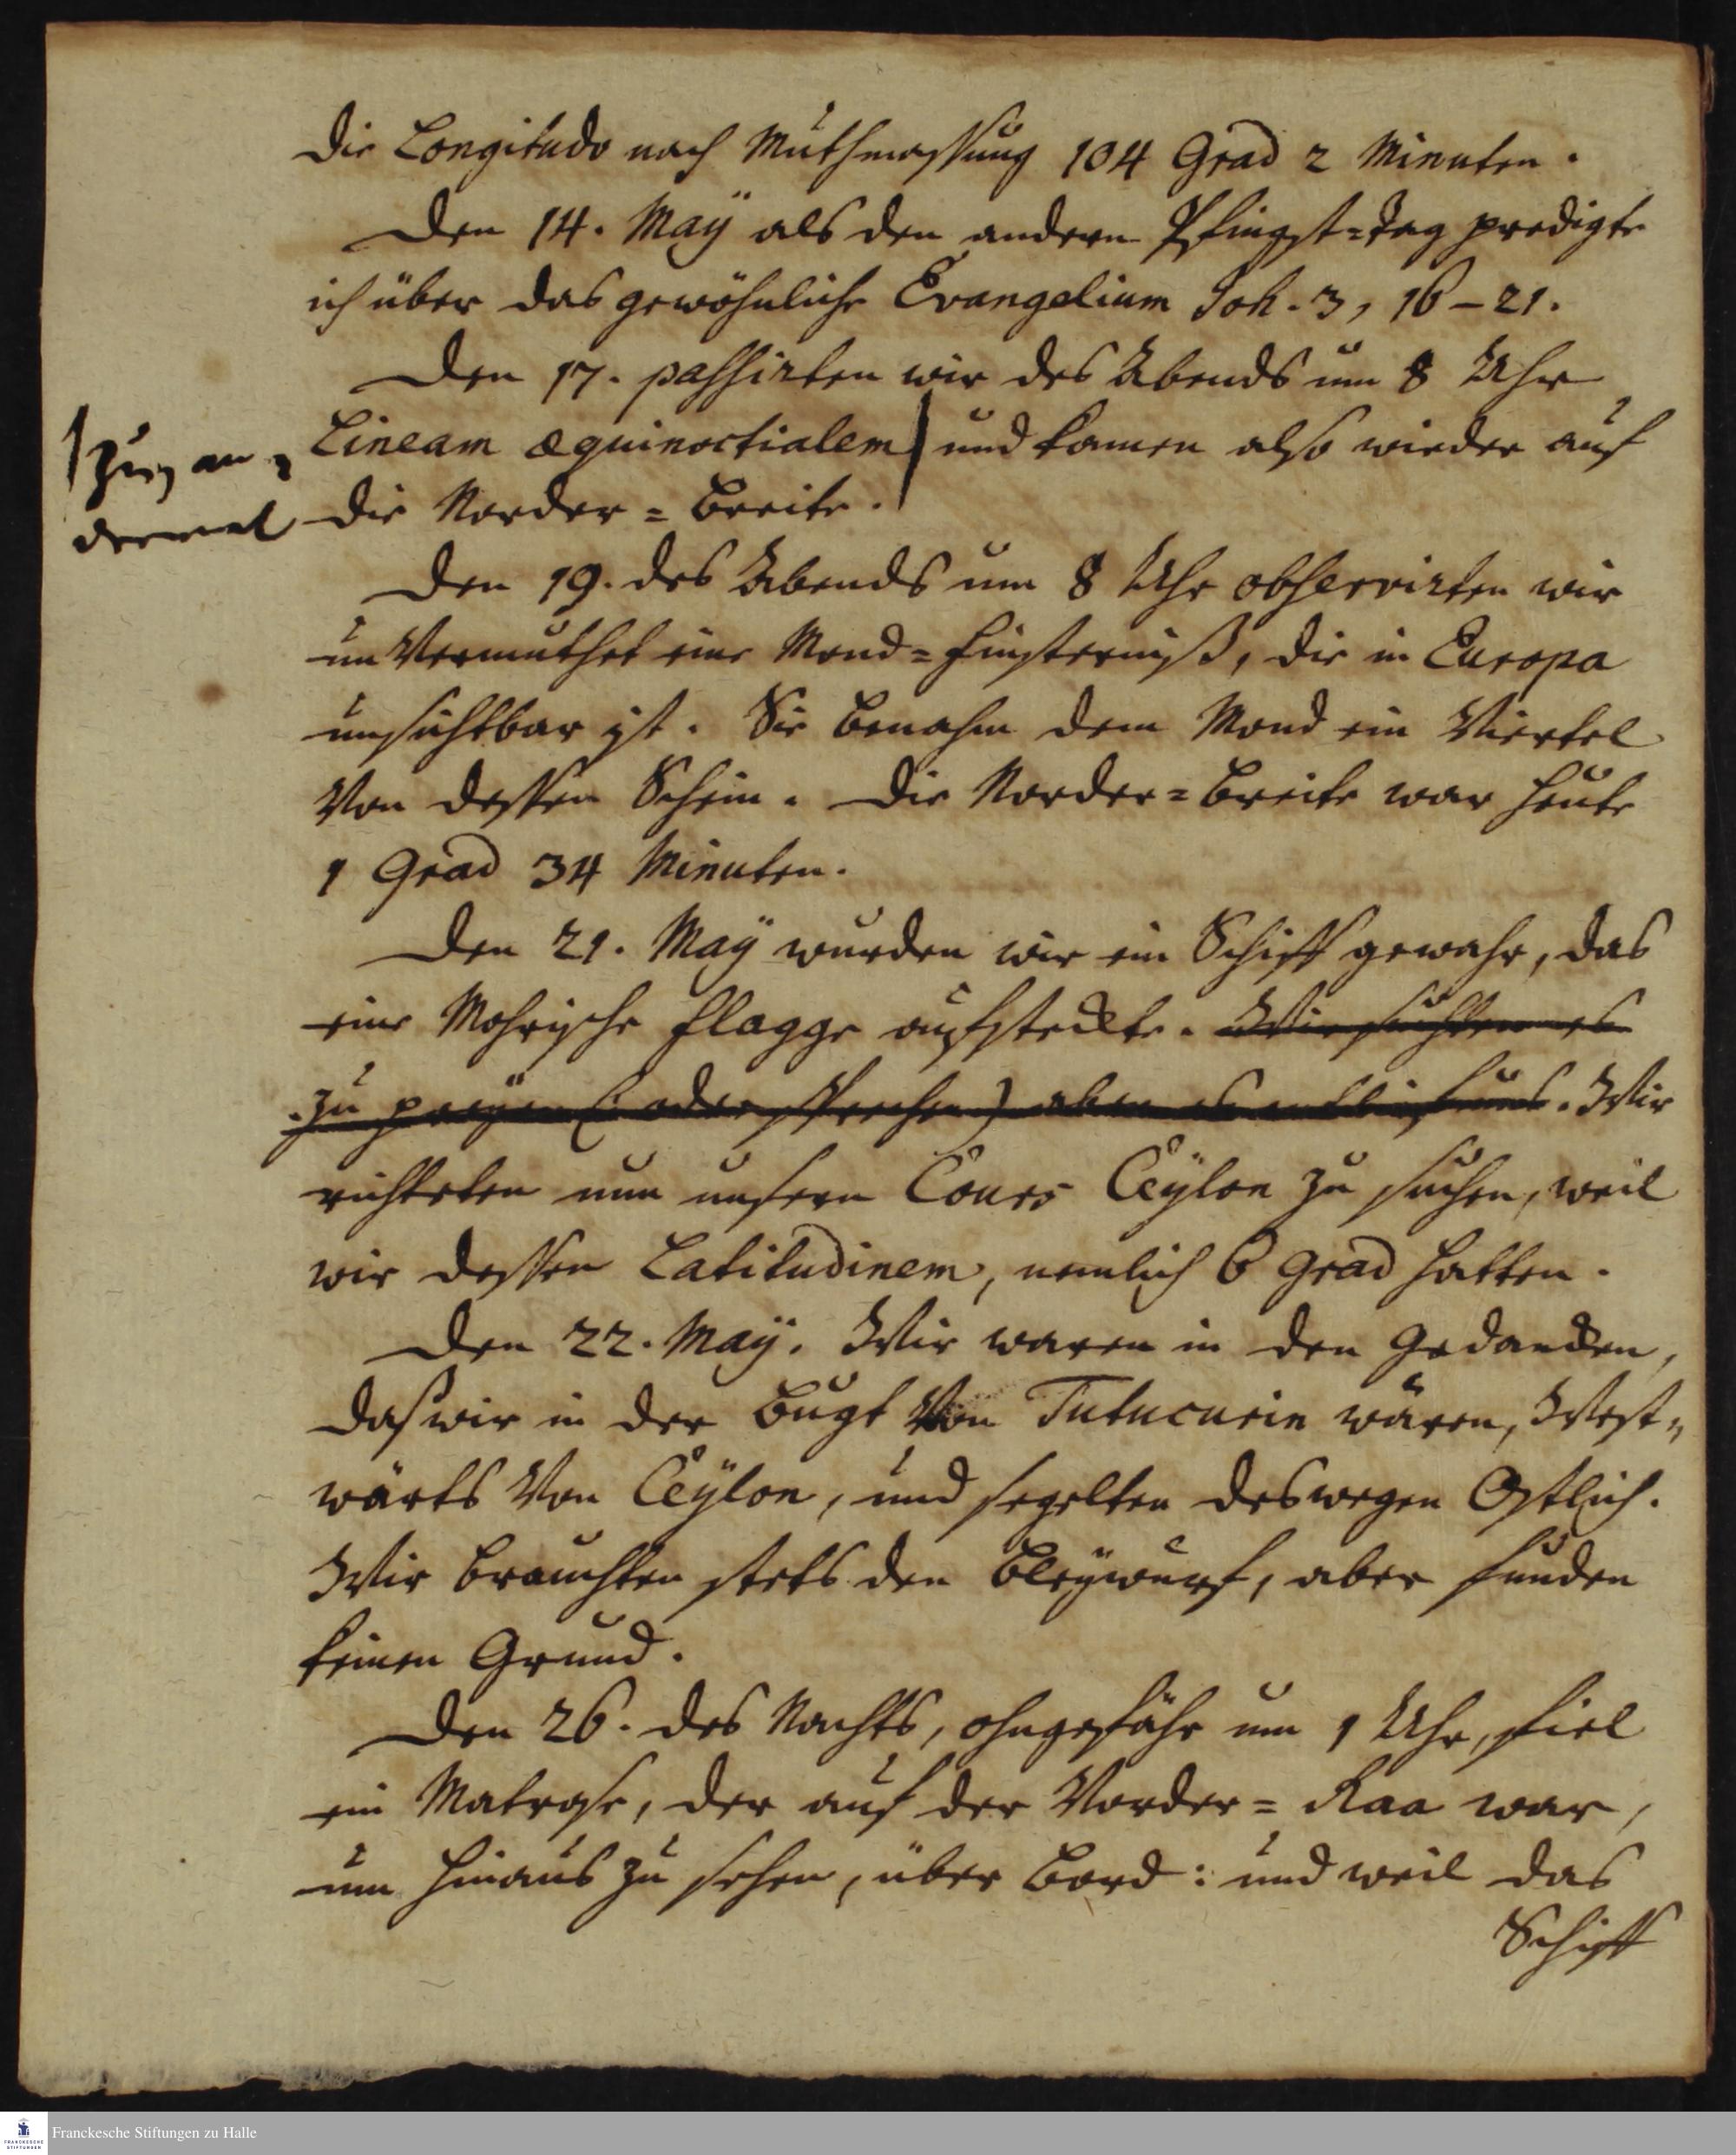 die Longitudo nach Muthmassung 104 Grad 2 Minuten.
Den 14. Maÿ als den andern Pfingst=Tag predigte
ich über das gewöhnliche Evangelium Joh. 3, 16–21.
Den 17. passirten wir des Abends um 8 Uhr
Lineam æquinoctialem | und kamen also wieder auf
die Norder=Breite.
| zum an=
dernmal
Den 19. des Abends um 8 Uhr observirten wir
unvermuthet eine Mond=Finsterniß, die in Europa
unsichtbar ist. Sie benahm dem Mond ein Viertel
von dessen Schein. Die Norder=Breite war heute
1 Grad 34 Minuten.
Den 21. Maÿ wurden wir ein Schiff gewahr, das
eine Mohrische Flagge aufsteckte. Wir suchten es
zu preÿen (: oder sprechen) aber es entlief uns. Wir
richteten nun unsern Cours Ceÿlon zu suchen, weil
wir dessen Latitudinem, nemlich 6 Grad hatten.
Den 22. Maÿ. Wir waren in den Gedancken,
daß wir in der Bugt von Tutucurin wären, West=
wärts von Ceÿlon, und segelten deswegen Ostlich.
Wir brauchten stets den Bleÿwurf, aber funden
keinen Grund.
Den 26. des Nachts, ohngefähr um 1 Uhr, fiel
ein Matrose, der auf der Vorder=Raa war,
um hinaus zu sehen, über Bord: und weil das
Schiff
Franckesche Stiftungen zu Halle
FRANCKESCHE
STIFTUNGEN